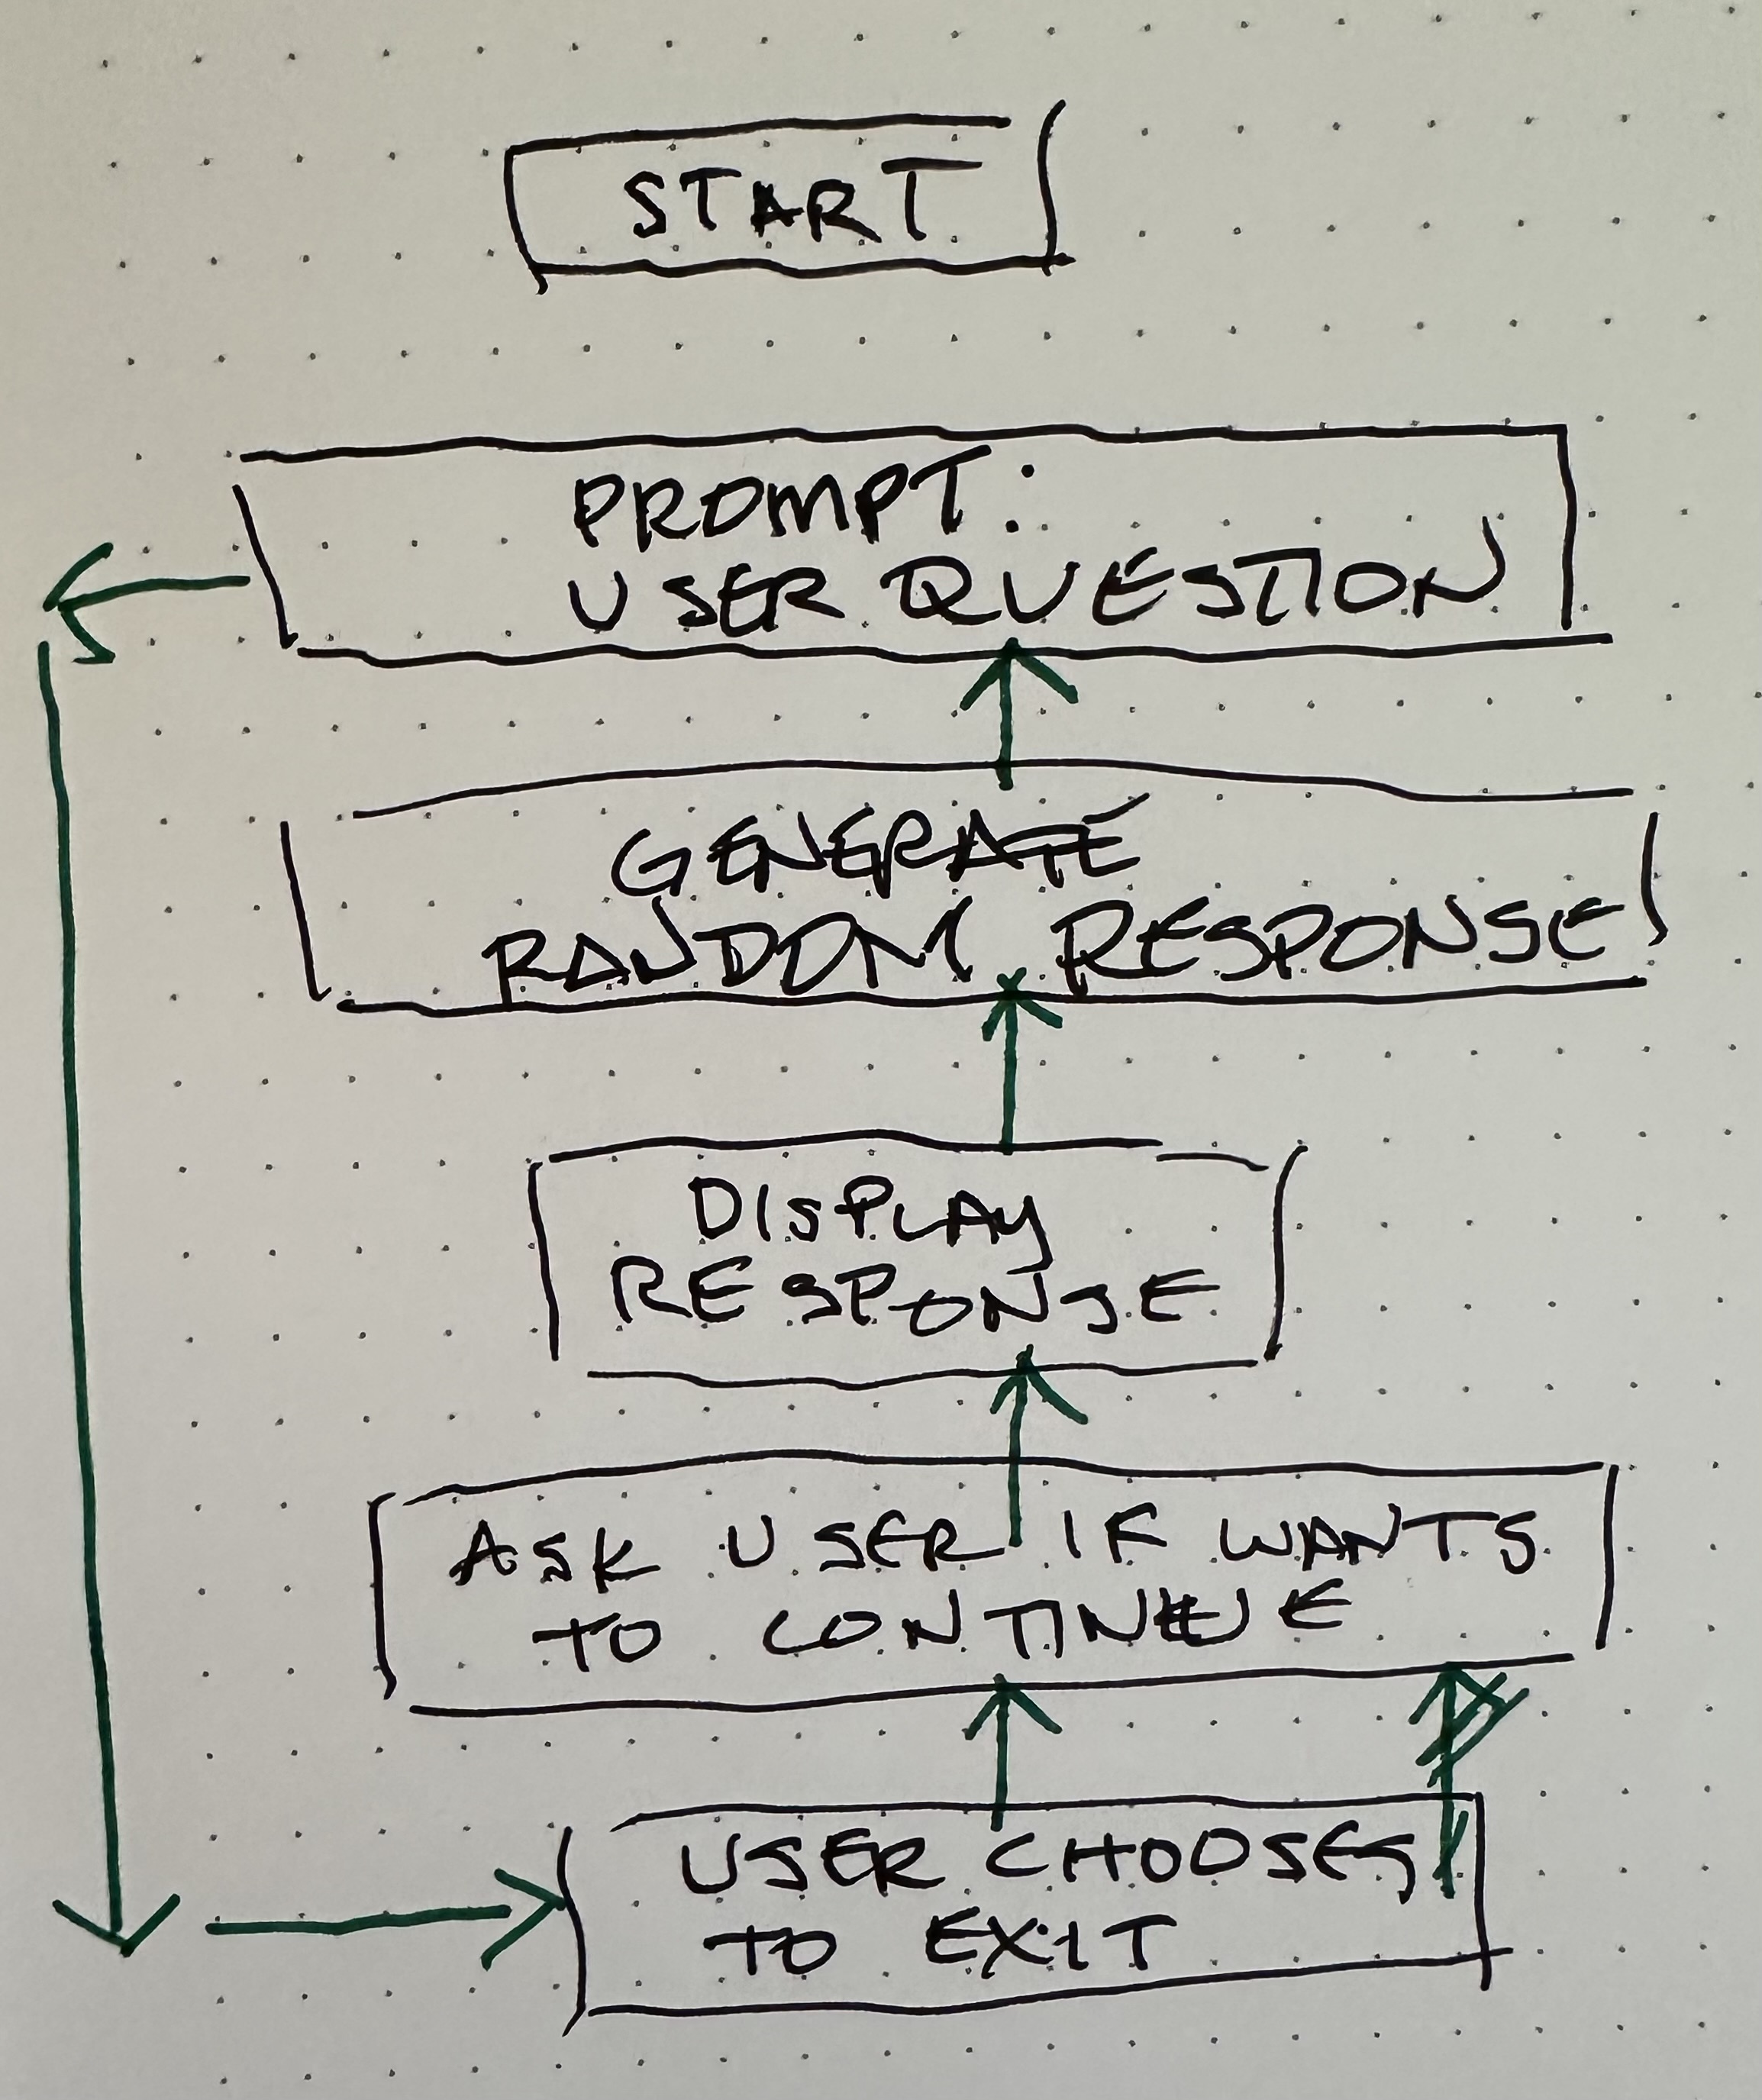 START
PROMPT:
USER QUESTION
GENERATE
RANDOM RESPONSE
DISPLAY
RESPONSE
ASK USER IF WANTS
TO CONTINUE
USER CHOOSES
TO EXIT